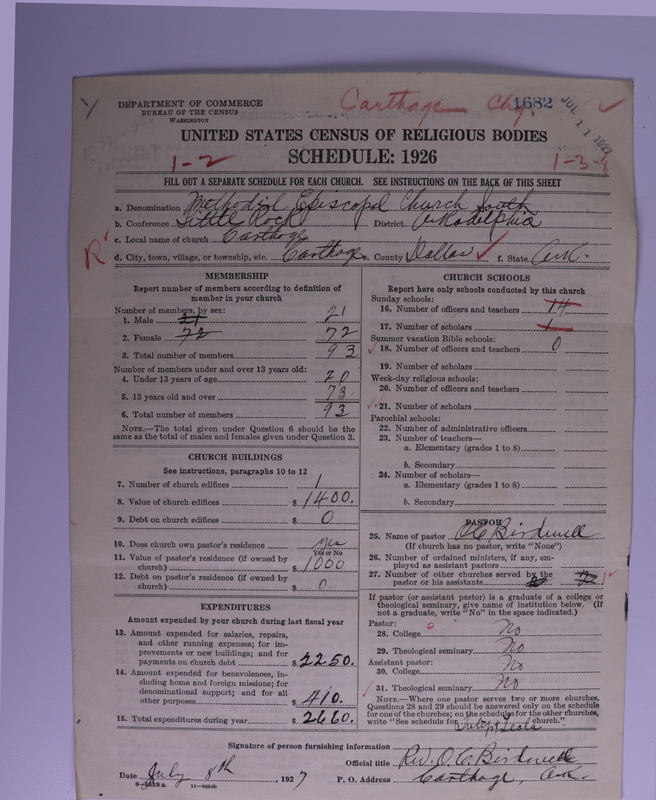 DEPARTMENT OF COMMERCE
BUREAU OF THE CENSUS
WASHINGTON
Carthage Chg.
1682
JUL 11 1927
UNITED STATES CENSUS OF RELIGIOUS BODIES
SCHEDULE: 1926
1-2
1-3-8
FILL OUT A SEPARATE SCHEDULE FOR EACH CHURCH. SEE INSTRUCTIONS ON THE BACK OF THIS SHEET
a. Denomination Methodist Episcopal Church South
b. Conference Little Rock District Arkadelphia
c. Local name of church Carthage
R
d. City, town, village, or township, etc. Carthage e. County Dallas f. State Ark.
MEMBERSHIP
Report number of members according to definition of
member in your church
Number of members, by sex:
1. Male 21 21
2. Female 72 72
3. Total number of members 93
Number of members under and over 13 years old:
4. Under 13 years of age 20
5. 13 years old and over 73
6. Total number of members 93
NOTE.—The total given under Question 6 should be
same as the total of males and females given under Question 3.
CHURCH BUILDINGS
See instructions, paragraphs 10 to 12
7. Number of church edifices 1
8. Value of church edifices $ 1400.
9. Debt on church edifices $ 0
10. Does church own pastor's residence yes
Yes or No
11. Value of pastor's residence (if owned by
church) $ 1000
12. Debt on pastor's residence (if owned by
church) $ 0
EXPENDITURES
Amount expended by your church during last fiscal year
13. Amount expended for salaries, repairs,
and other running expenses; for im-
provements or new buildings; and for
payments on church debt $ 2250.
14. Amount expended for benevolences, in-
cluding home and foreign missions; for
denominational support; and for all
other purposes $ 410.
15. Total expenditures during year $ 2660.
CHURCH SCHOOLS
Report here only schools conducted by this church
Sunday schools:
16. Number of officers and teachers 14
17. Number of scholars 1
Summer vacation Bible schools:
18. Number of officers and teachers 0
19. Number of scholars
Week-day religious schools:
20. Number of officers and teachers
21. Number of scholars
Parochial schools:
22. Number of administrative officers
23. Number of teachers—
a. Elementary (grades 1 to 8)
b. Secondary
24. Number of scholars—
a. Elementary (grades 1 to 8)
b. Secondary
PASTOR
25. Name of pastor O C Birdwell
(If church has no pastor, write "None")
26. Number of ordained ministers, if any, em-
ployed as assistant pastors
27. Number of other churches served by the
pastor or his assistants
If pastor (or assistant pastor) is a graduate of a college or
theological seminary, give name of institution below. (If
not a graduate, write "No" in the space indicated.)
Pastor:
28. College No
29. Theological seminary No
Assistant pastor:
30. College No
31. Theological seminary No
NOTE.—Where one pastor serves two or more churches,
Questions 28 and 29 should be answered only on the schedule
for one of the churches; on the schedules for the other churches,
write "See schedule for church."
Signature of person furnishing information
Official title Rev. O. C. Birdwell
Date July 8th, 1927 P. O. Address Carthage, Ark.
11—9024b